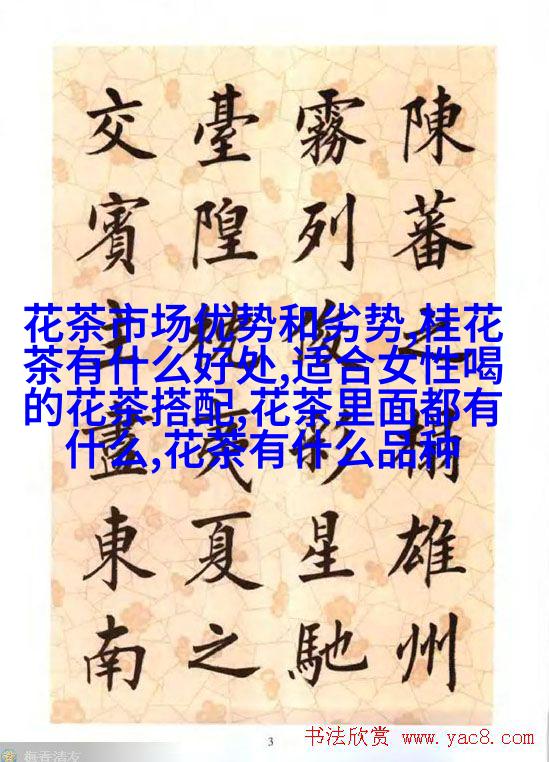 陳蕃之榻雄州
霧列俊彩星馳
臺隍枕夷夏之
交賓主盡東南
花茶市场优势和劣势,桂花
茶有什么好处,适合女性喝
的花茶搭配,花茶里面都有
什么,花茶有什么品种
3
书法欣赏 www.yac8.com